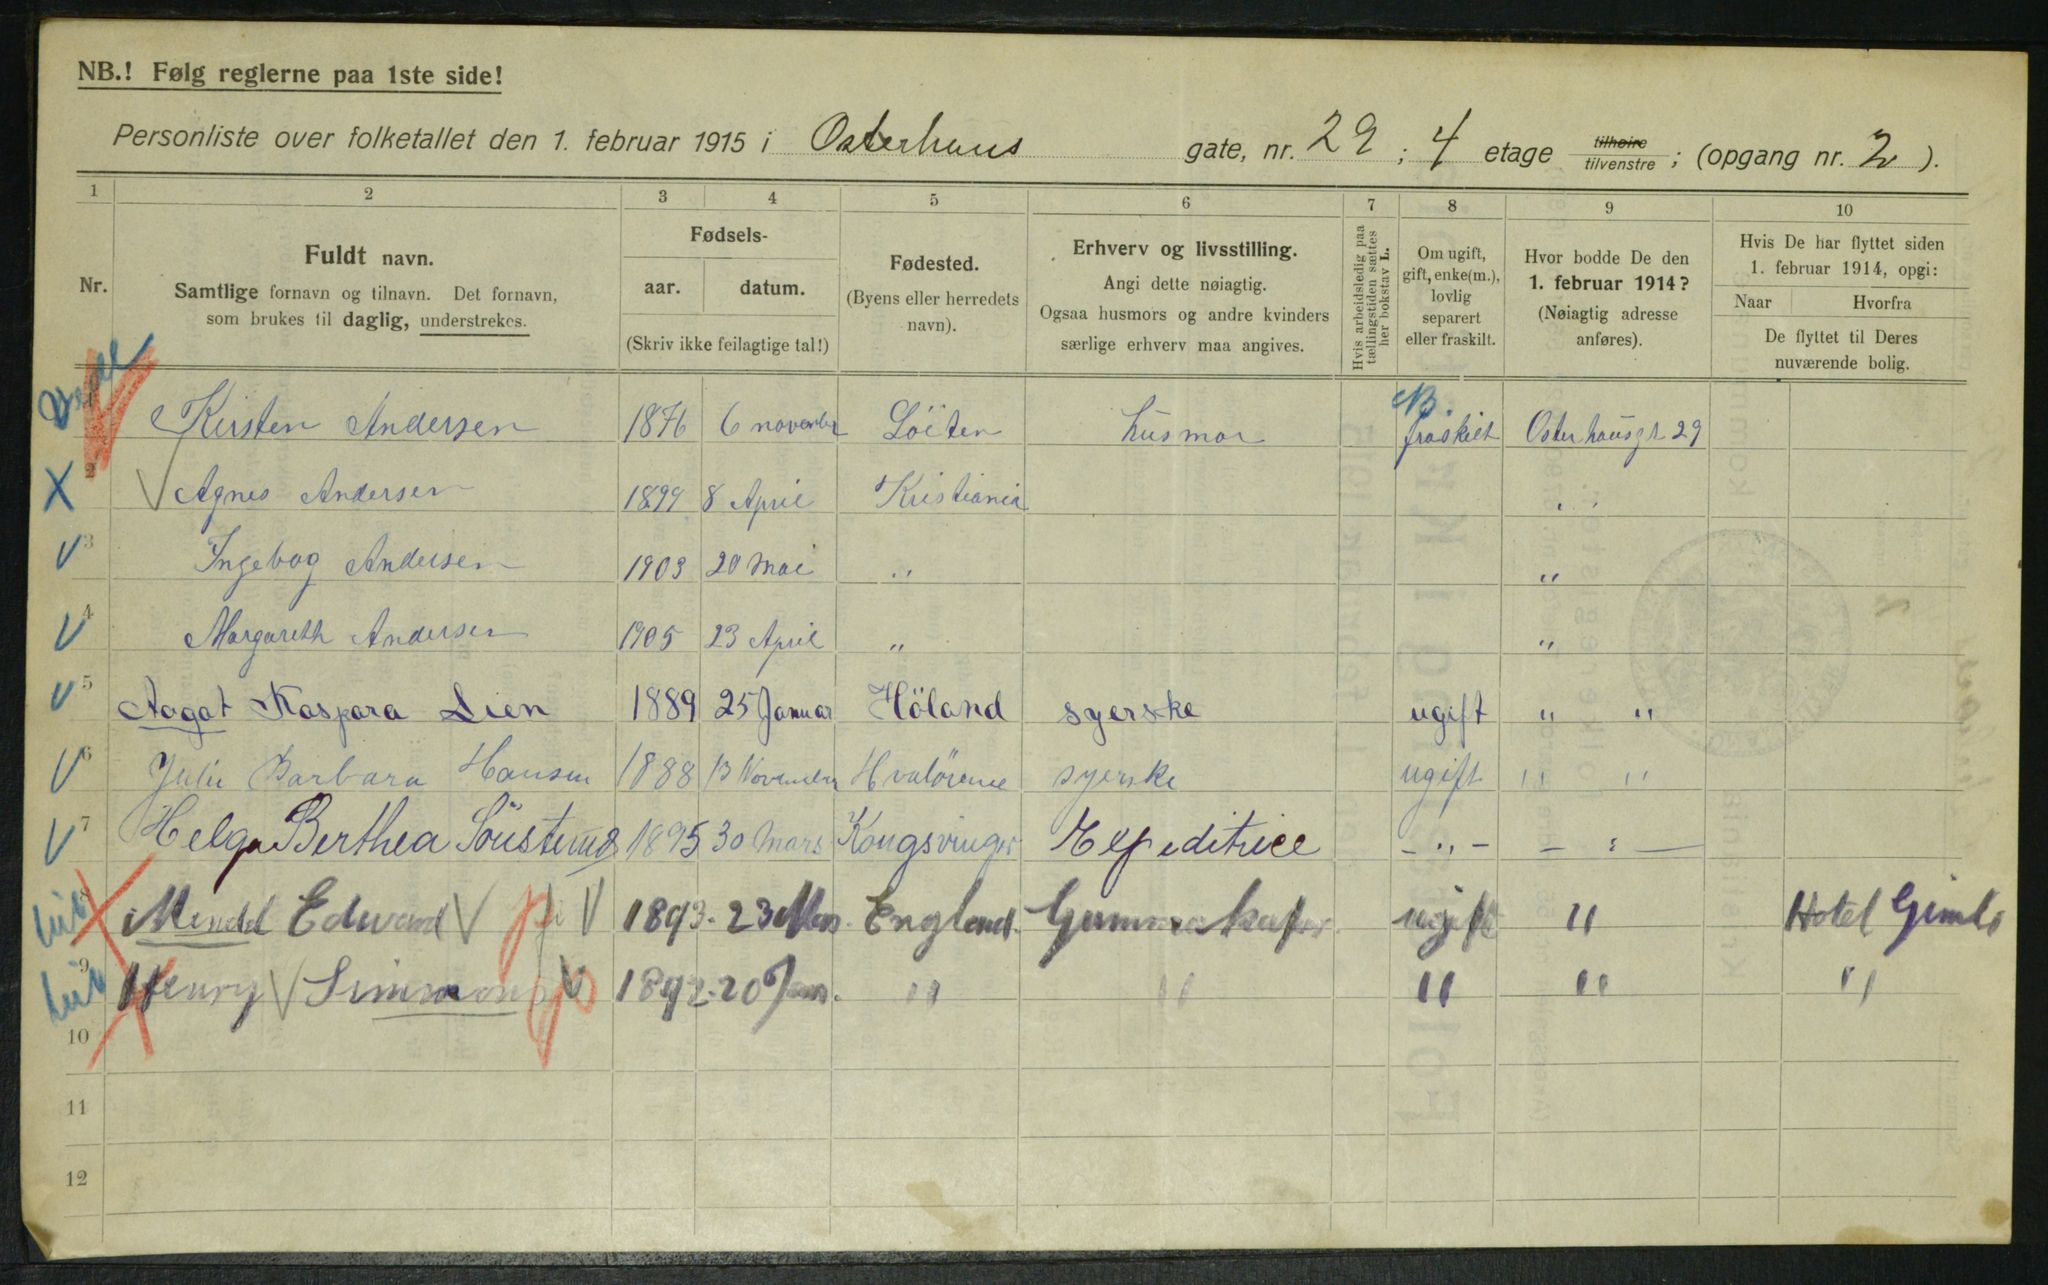 NB.! Følg reglerne paa 1ste side!
Personliste over folketallet den 1. februar 1915 i Osterhaus gate, nr. 29 ; 4 etage tilhøire tilvenstre ; (opgang nr. 2 ).
1 2 3 4 5 6 7 8 9 10
Nr.
Fuldt navn.
Samtlige fornavn og tilnavn. Det fornavn,
som brukes til daglig, understrekes.
Fødsels-
aar. datum.
(Skriv ikke feilagtige tal!)
Fødested.
(Byens eller herredets
navn).
Erhverv og livsstilling.
Angi dette nøiagtig.
Ogsaa husmors og andre kvinders
særlige erhverv maa angives.
Hvis arbeidsledig paa
tællingstiden sættes
her bokstav L.
Om ugift,
gift, enke(m.),
lovlig
separert
eller fraskilt.
Hvor bodde De den
1. februar 1914?
(Nøiagtig adresse
anføres).
Hvis De har flyttet siden
1. februar 1914, opgi:
Naar Hvorfra
De flyttet til Deres
nuværende bolig.
Kirsten Andersen 1876 6 november Löiten husmor fraskilt Osterhausgt 29
2 Agnes Andersen 1899 8 April Kristiania " "
3 Ingebog Andersen 1903 20 Mai " "
4 Margareth Andersen 1905 23 April " "
5 Aagot Kaspara Lien 1889 25 Januar Höland syerske ugift " "
6 Julie Barbara Hansen 1888 13 November Hvalörene syerske ugift " "
7 Helga Berthea 1895 30 Mars Kongsvinger Expeditrice - " - - " -
8 Edward 1893 - 23 Mars England ugift " Hotel Gimle
9 Henry Simmons 1892 - 20 Jan. " " " " "
10
11
12